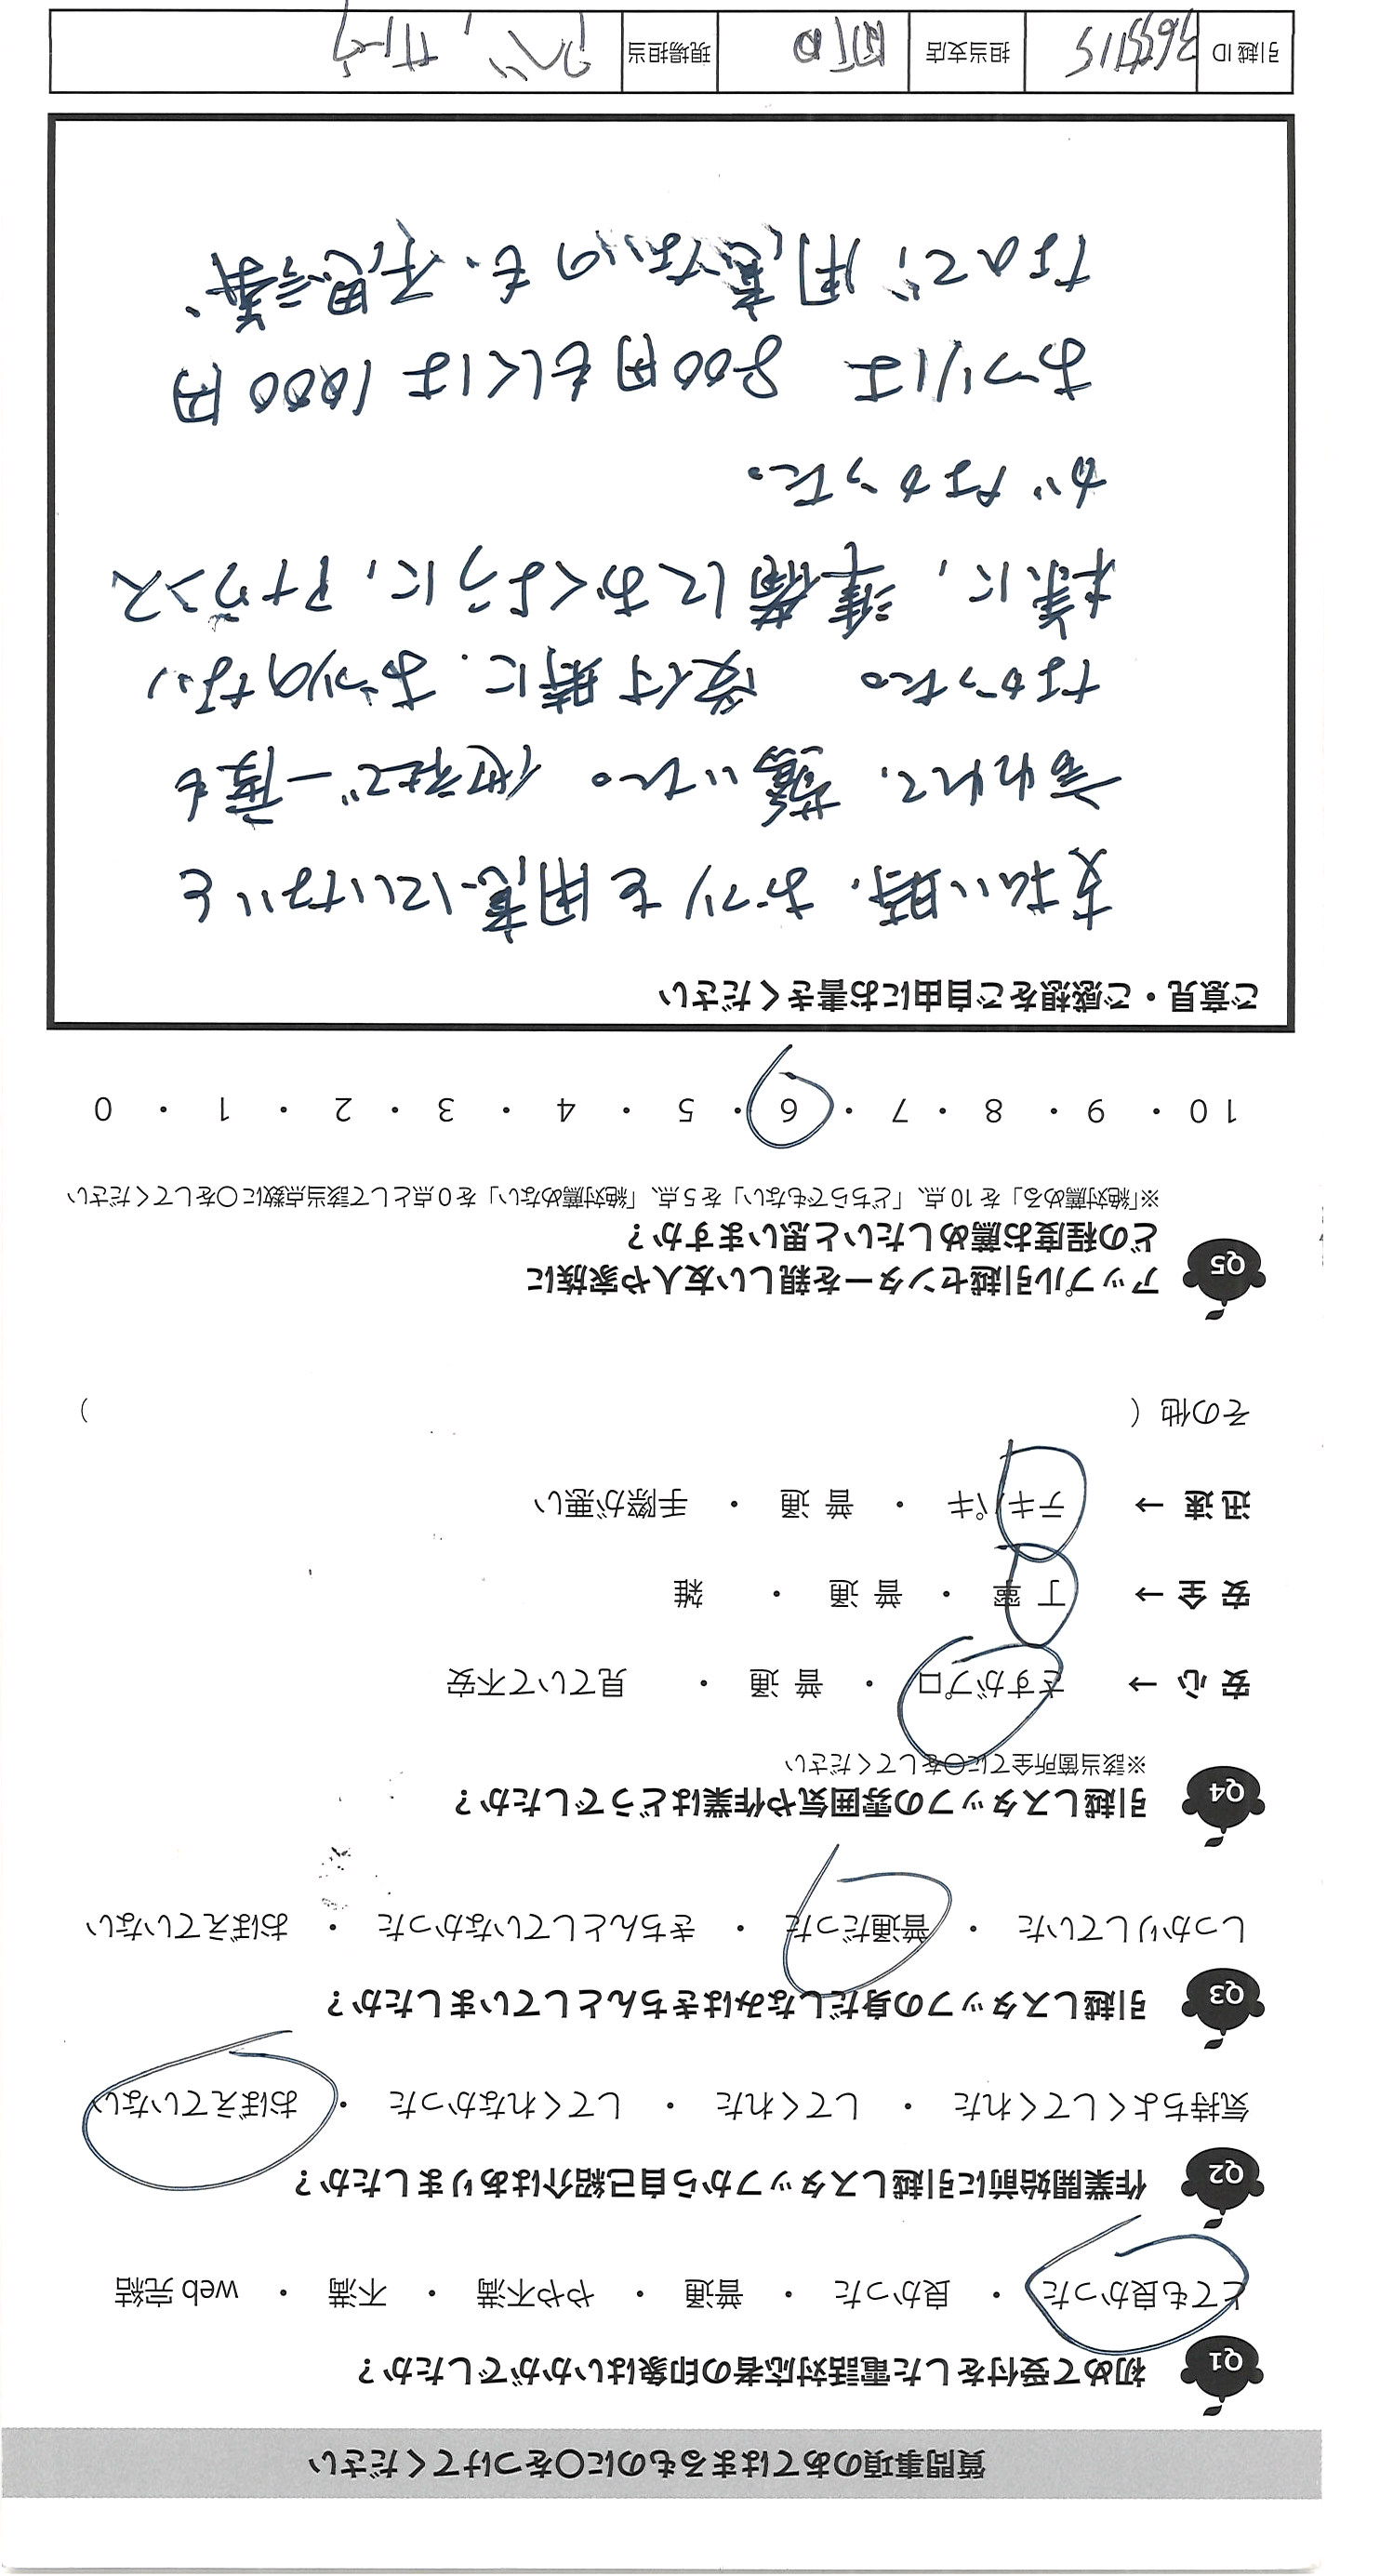 質問事項のあてはまるものに○をつけてください
Q1 初めて受付をした電話対応者の印象はいかがでしたか？
とても良かった ・ 良かった ・ 普通 ・ やや不満 ・ 不満 ・ web 完結
Q2 作業開始前に引越しスタッフから自己紹介はありましたか？
気持ちよくしてくれた ・ してくれた ・ してくれなかった ・ おぼえていない
Q3 引越しスタッフの身だしなみはきちんとしていましたか？
しっかりしていた ・ 普通だった ・ きちんとしていなかった ・ おぼえていない
Q4 引越しスタッフの雰囲気や作業はどうでしたか？
※該当箇所全てに○をしてください
安 心 → さすがプロ ・ 普 通 ・ 見ていて不安
安 全 → 丁 寧 ・ 普 通 ・ 雑
迅 速 → テキパキ ・ 普 通 ・ 手際が悪い
その他 （ ）
Q5 アップル引越センターを親しい友人や家族に
どの程度お薦めしたいと思いますか？
※「絶対薦める」を 10 点、「どちらでもない」を 5 点、「絶対薦めない」を 0 点として該当点数に○をしてください
10 ・ 9 ・ 8 ・ 7 ・ 6 ・ 5 ・ 4 ・ 3 ・ 2 ・ 1 ・ 0
ご意見・ご感想をご自由にお書きください
支払い時、おつりを用意していないと
言われて、驚いた。他社で一度も
なかった。 受付時に、おつりのない
様に、準備しておくように、アナウンス
がなかった。
おつりは 800円もしくは 1000円
なので、用意ないのも、不思議、
引越 ID 担当支店 町田 現場担当